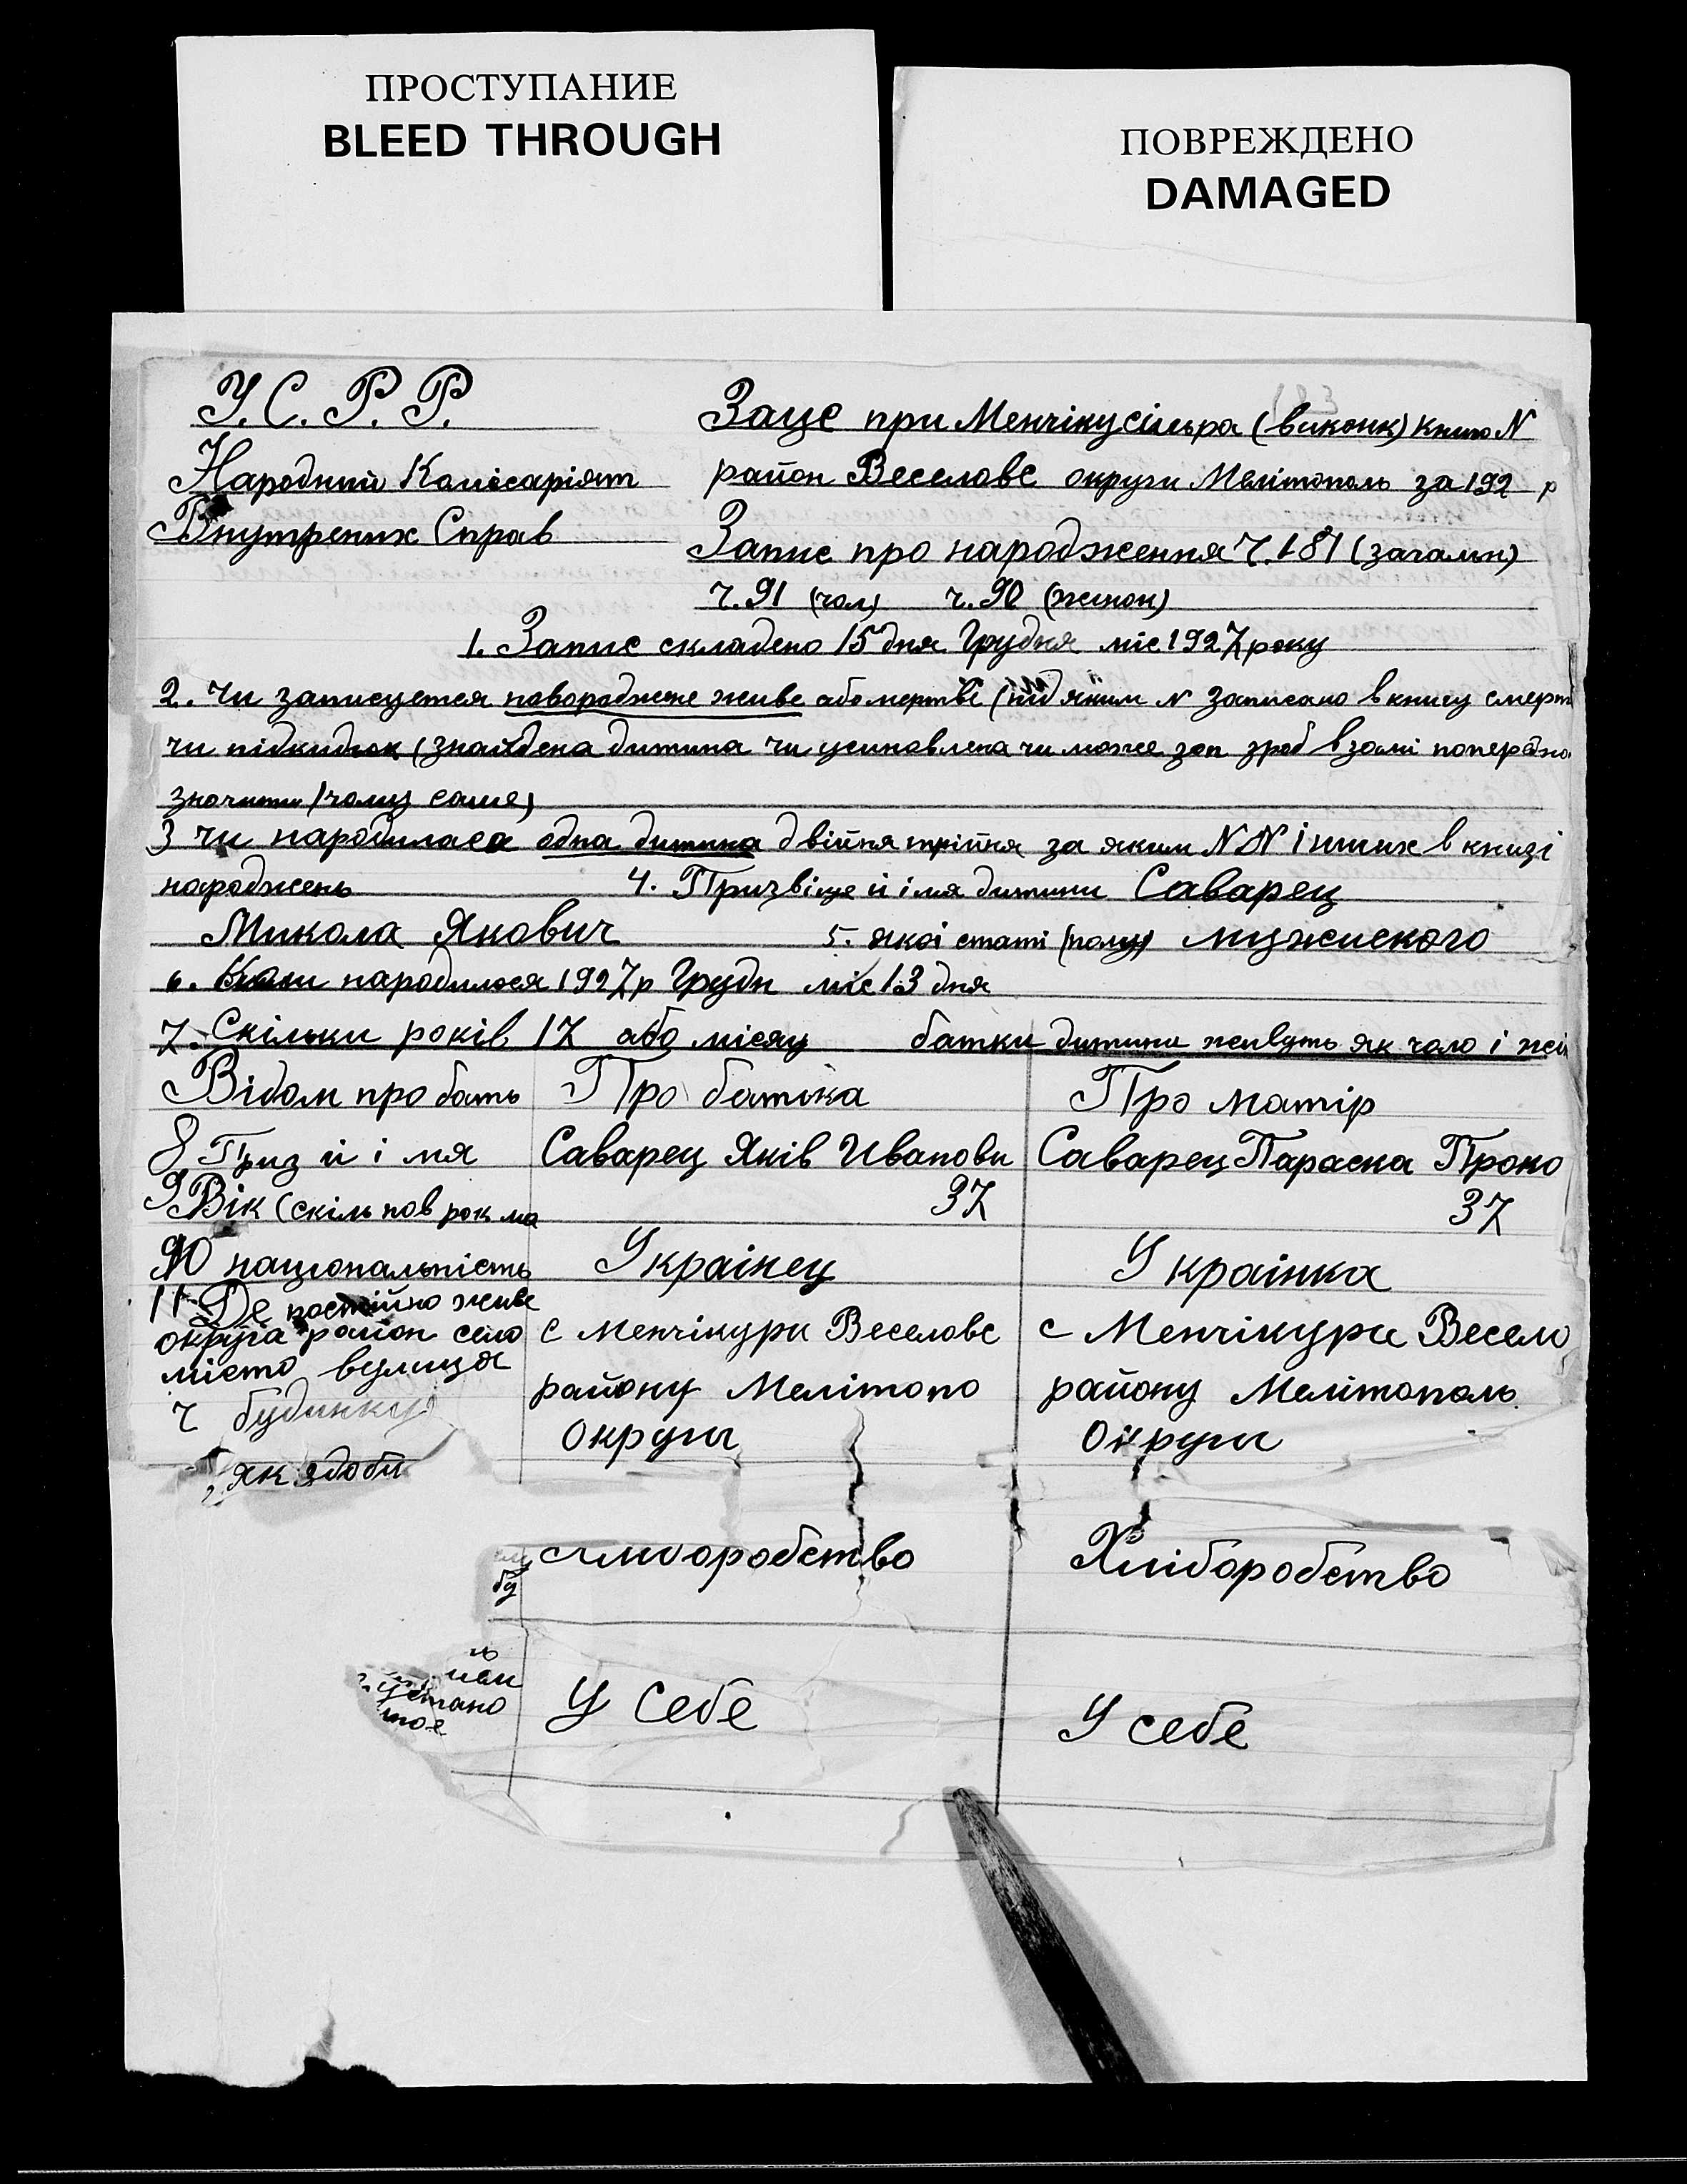 ПРОСТУПАНИЕ
BLEED THROUGH
ПОВРЕЖДЕНО
DAMAGED
У.С.Р.Р.
Народний Комісаріят
Внутрених Справ
Загс при Менчікусільра (виконк) книга N
район Веселовс округи Мелітополь за 192 р
Запис про народження Ч.181 (загальн)
ч.91 (чол) ч.90 (жінок)
1. Запис складено 15 дня Грудня міс 1927 року
2. Чи записуется новороджене живе або мертві (під яким N записано в книгу смерт
чи підкидьок (знайдена дитина чи усиновлена чи може зап зроб взамі попередно
значити (чому саме)
3 чи народилася одна дитина двійня трійня за яким NN інших в книзі
народжень 4. Призвіще й імя дитини Саварец
Микола Якович 5. якої статі (полу) мужиского
6. Коли народилося 1927 р Грудн міс 13 дня
7. Скільки років 17 або місяц батьки дитини живуть як чоло і жін
Відом про бать Про батька Про матір
8 Приз й імя Саварец Яків Иванови Саварец Параска Проко
9 Вік (скіль пов рок ма 37 37
10 національність Українец Українка
11 Де постійно живе
округа район село с Менчікури Веселовс с Менчікури Весело
місто вулиця
району Мелітопо району Мелітополь
ч будинку
округи округи
як здоби
бу
хліборобство Хліборобство
устано
У себе У себе